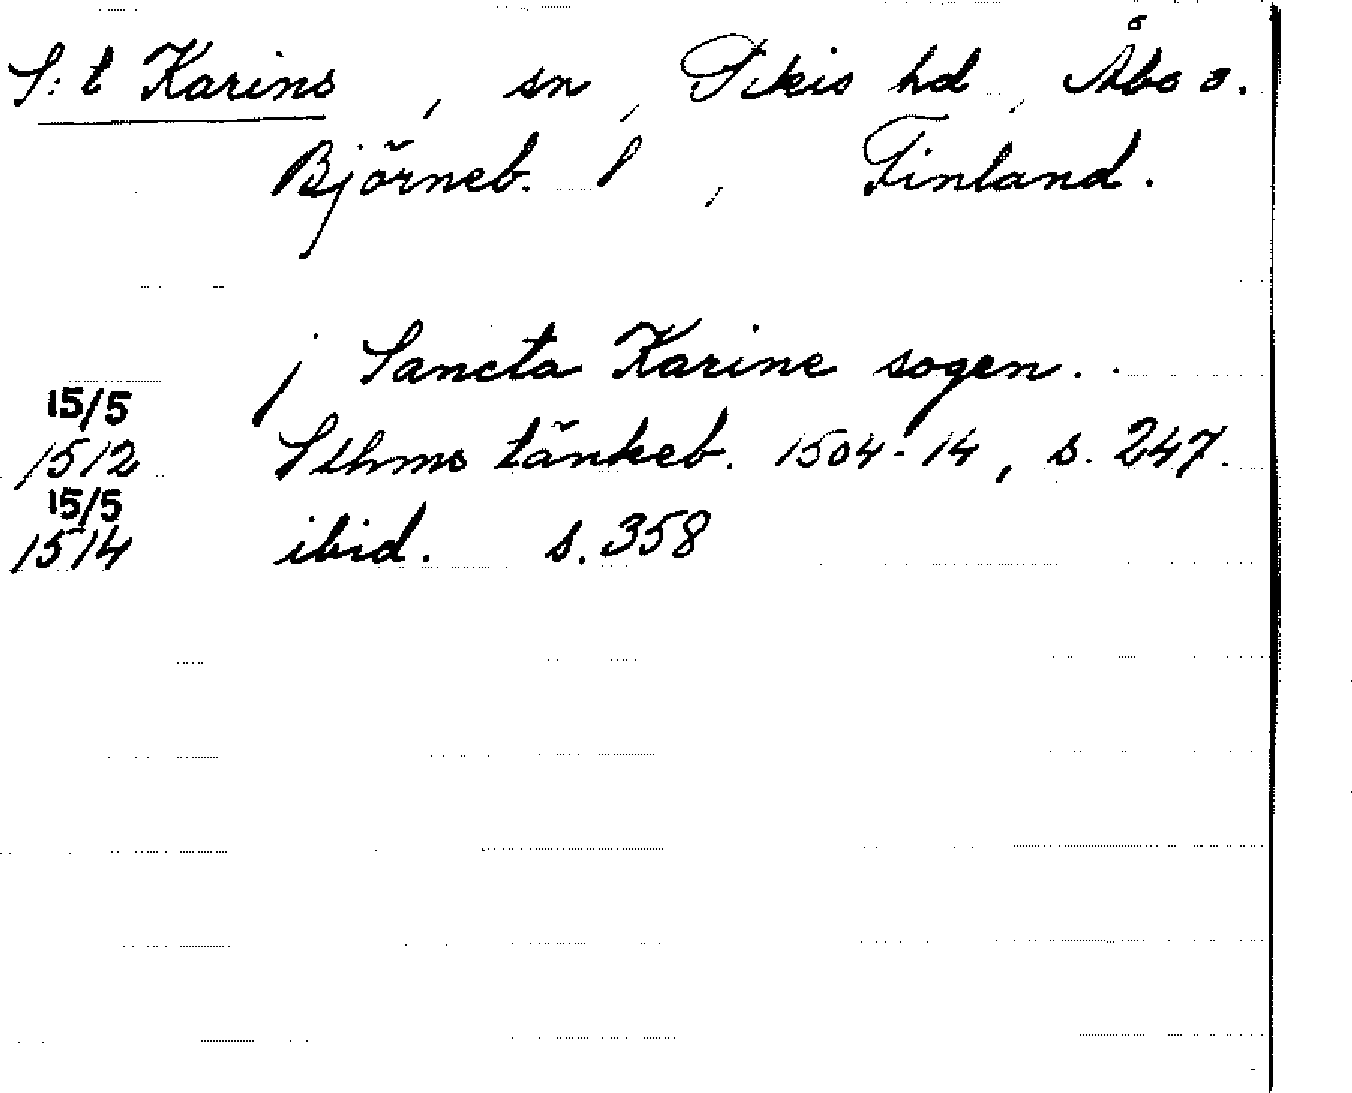 S:t Karins, sn, Pikis hd, Åbo o.
Björneb. l, Finland.
j Sancta Karine sogen..
15/5
1512 Sthms tänkeb. 1504-14, s. 247.
15/5
1514 ibid. s. 358